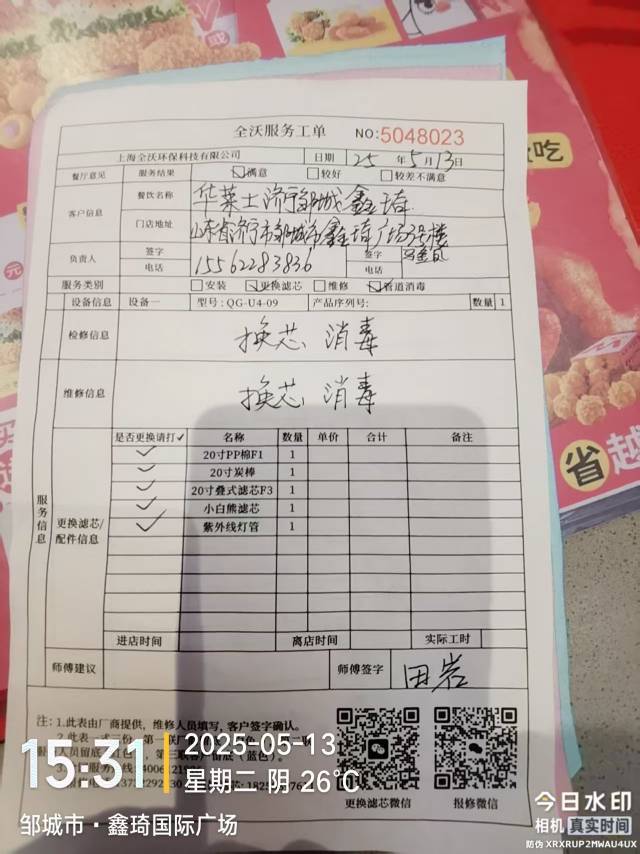 全沃服务工单 NO:5048023
上海全沃环保科技有限公司 日期 25 年 5 月 13 日
餐厅意见 服务结果 满意 较好 较差不满意
客户信息 餐饮名称 华莱士济宁邹城鑫琦
门店地址 山东省济宁市邹城市鑫琦广场3号楼
负责人 签字 签字
电话 15562283836 电话
服务类别 安装 更换滤芯 维修 管道消毒
设备信息 设备一 型号: QG-U4-09 产品序列号: 数量 1
检修信息 换芯 消毒
维修信息 换芯 消毒
服务信息
更换滤芯/配件信息
是否更换请打✓ 名称 数量 单价 合计 备注
✓ 20寸PP棉F1 1
✓ 20寸炭棒 1
✓ 20寸叠式滤芯F3 1
✓ 小白熊滤芯 1
✓ 紫外线灯管 1
进店时间 离店时间 实际工时
师傅建议 师傅签字 田岩
注: 1.此表由厂商提供, 维修人员填写, 客户签字确认。
2.此表一式三份, 第一联厂
更换滤芯微信 报修微信
15:31
2025-05-13
星期二 阴 26℃
邹城市·鑫琦国际广场
今日水印
相机 真实时间
防伪 XRXRUP2MWAU4UX
吃
省
越